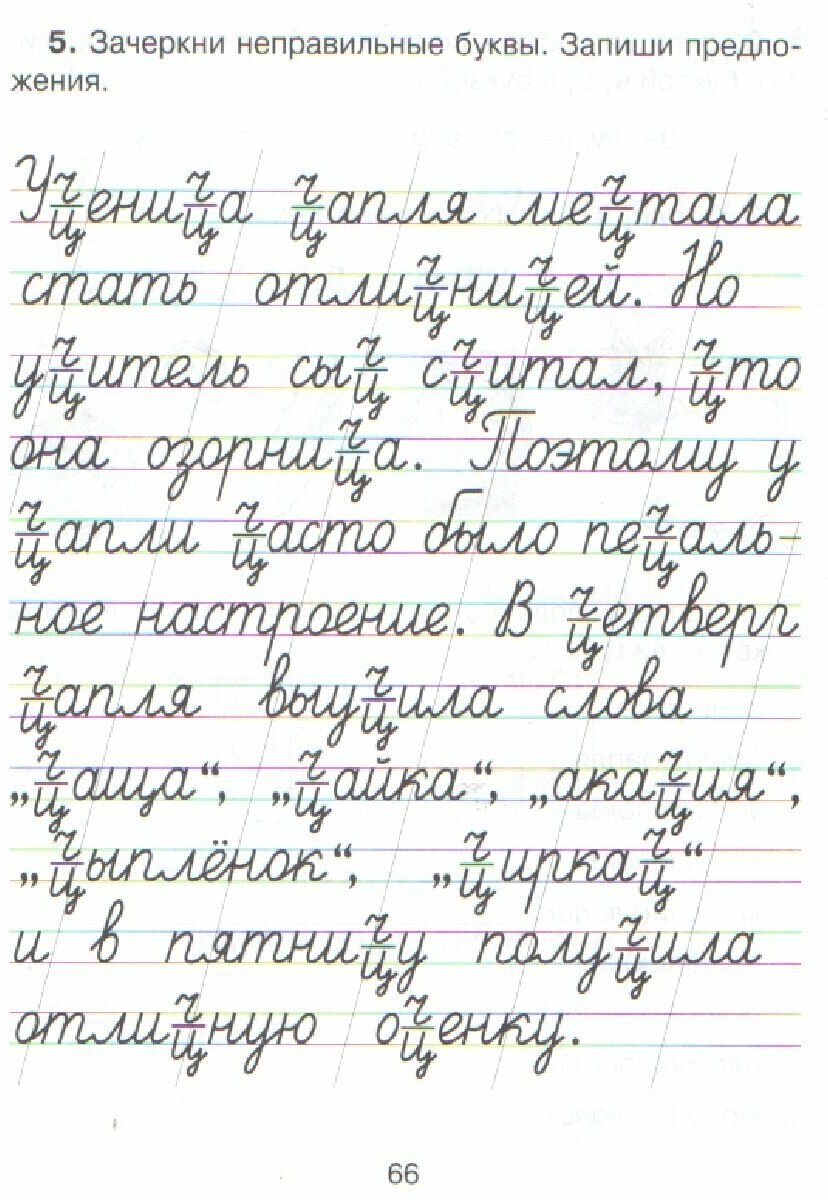 5. Зачеркни неправильные буквы. Запиши предло-
жения.
Уч/ценич/ца ч/цапля меч/цтала
стать отлич/цнич/цей. Но
уч/цитель сыч/ц сч/цитал, ч/цто
она озорнич/ца. Поэтому у
ч/цапли ч/часто было печ/цаль-
ное настроение. В ч/цетверг
ч/цапля выуч/цила слова
„ч/цаща“, „ч/цайка“, „акач/ция“,
„ч/цыплёнок“, „ч/циркач/ц“
и в пятнич/цу получ/цила
отлич/цную оч/ценку.
66